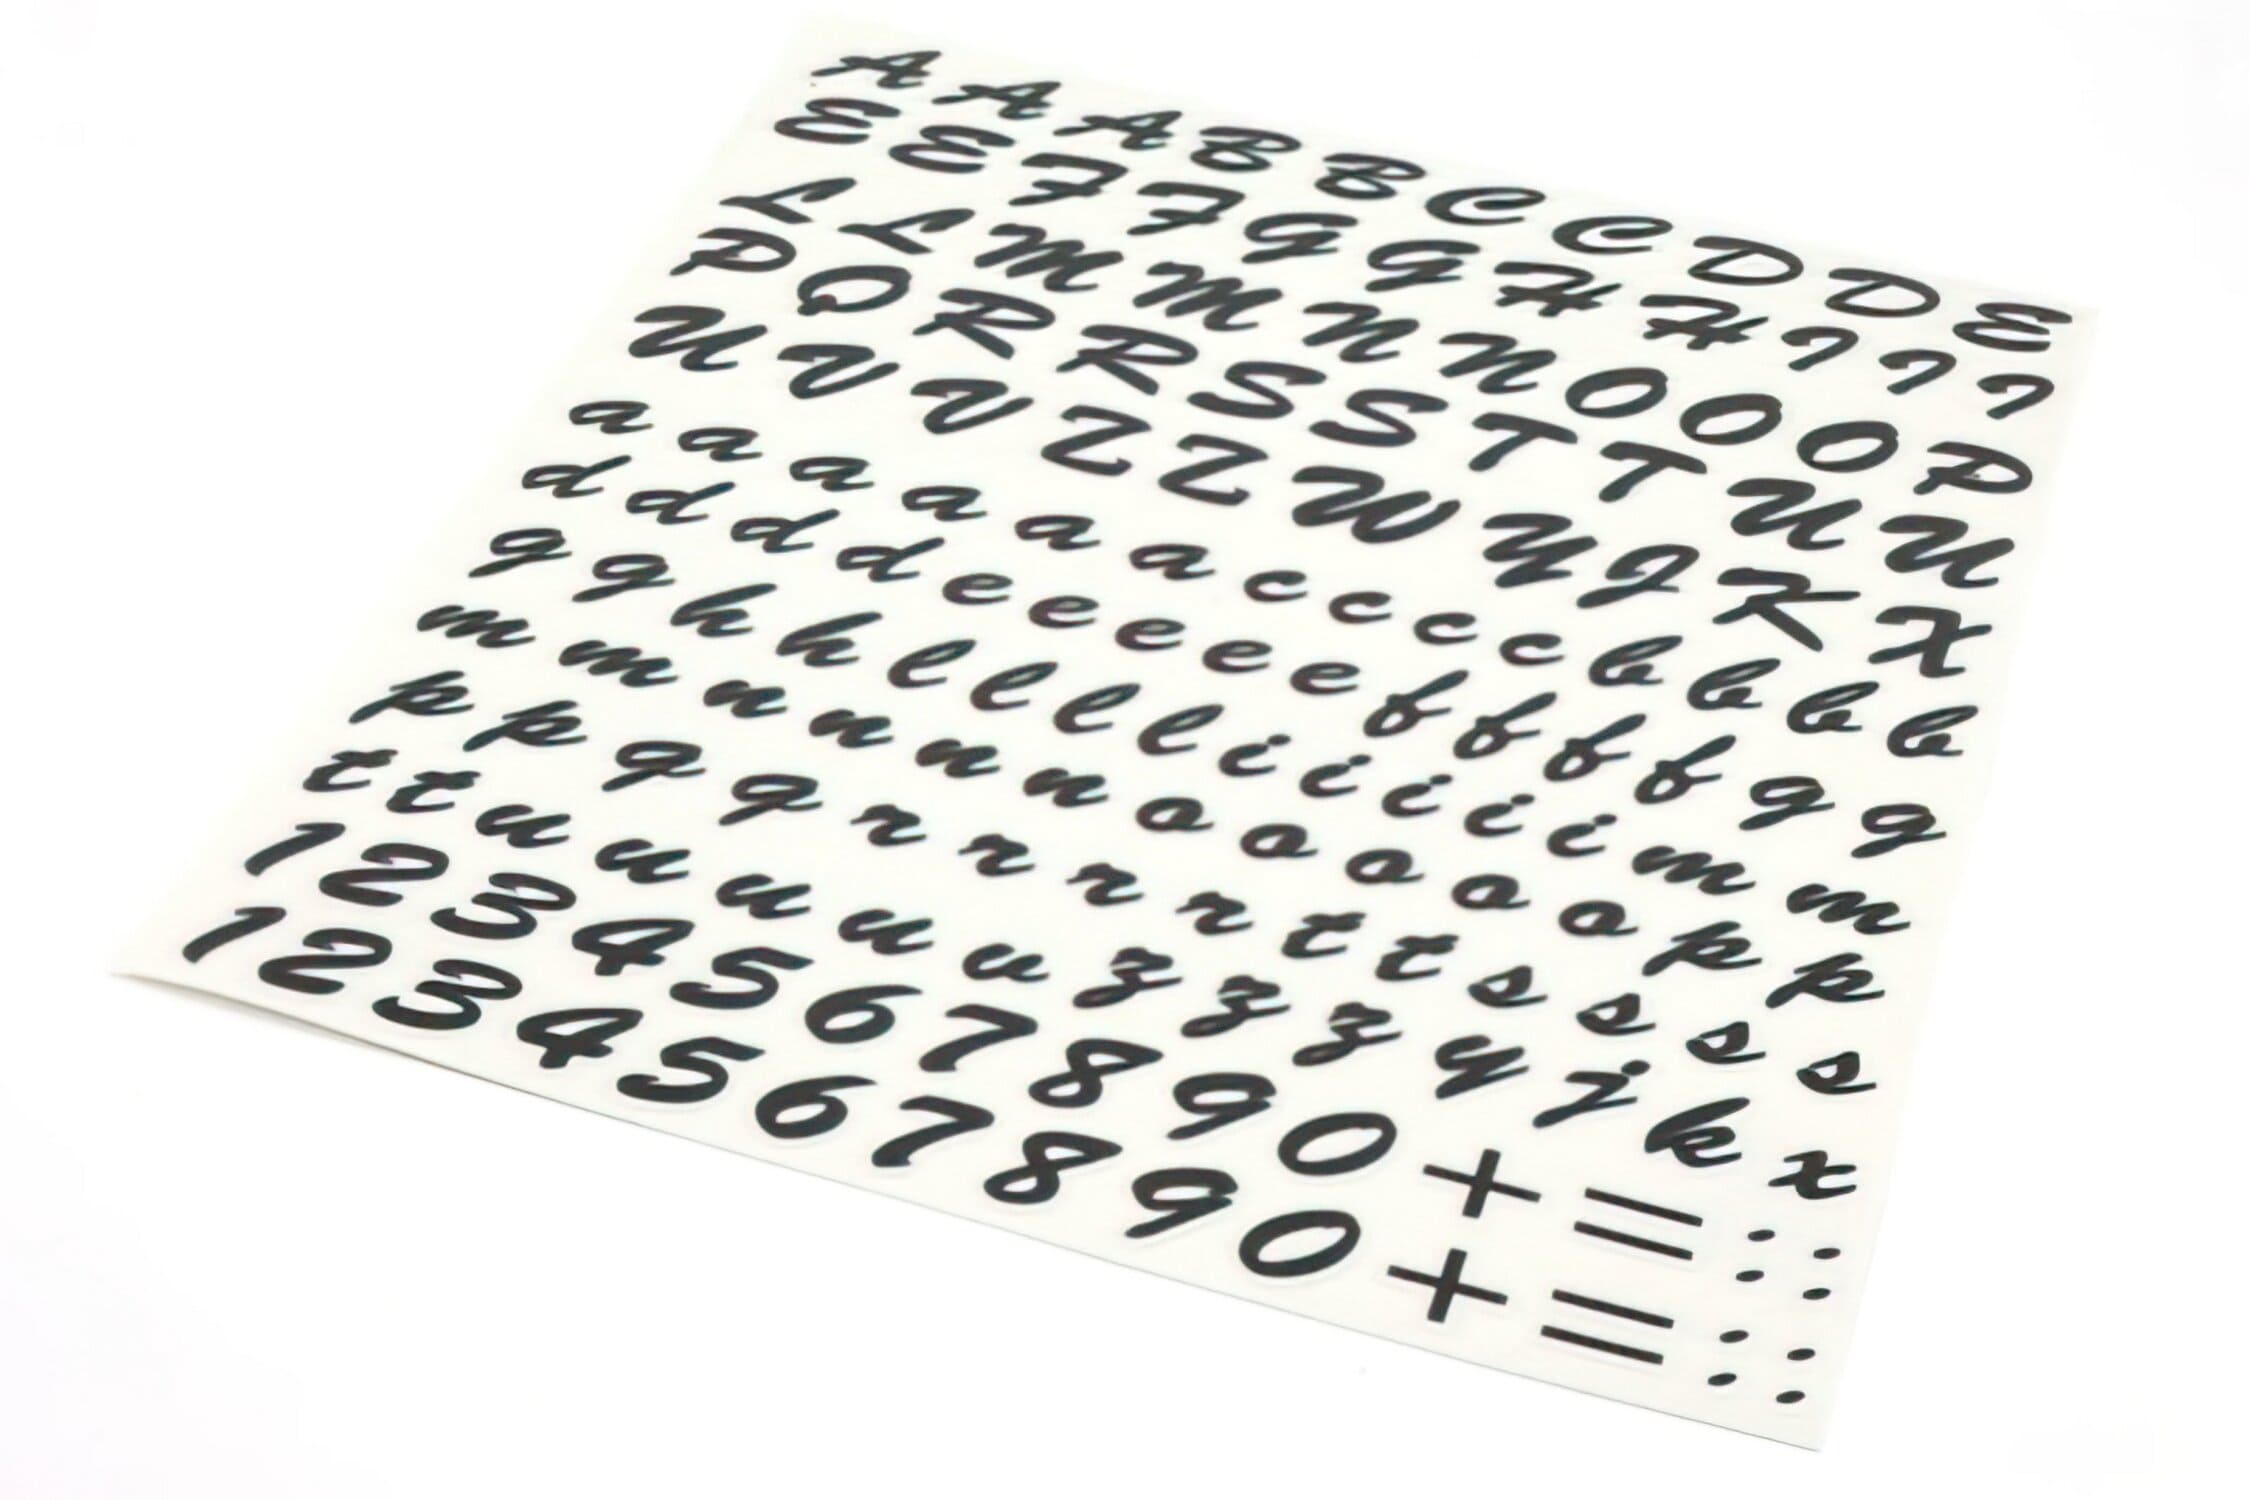 A A A B B C C D D E
E E F F G G H H I I I
L L M M N N O O O P
P Q R R S S T T U U
U V V Z Z W Y J K X
a a a a a a c c c c b b b b
d d d d e e e e e f f f f g g
g g h h l l l l i i i i i m m
m m n n n n o o o o o p p
p p q q r r r r t t s s s s
t t u u u u v z z z y j k x
1 2 3 4 5 6 7 8 9 0 + = : :
1 2 3 4 5 6 7 8 9 0 + = : :